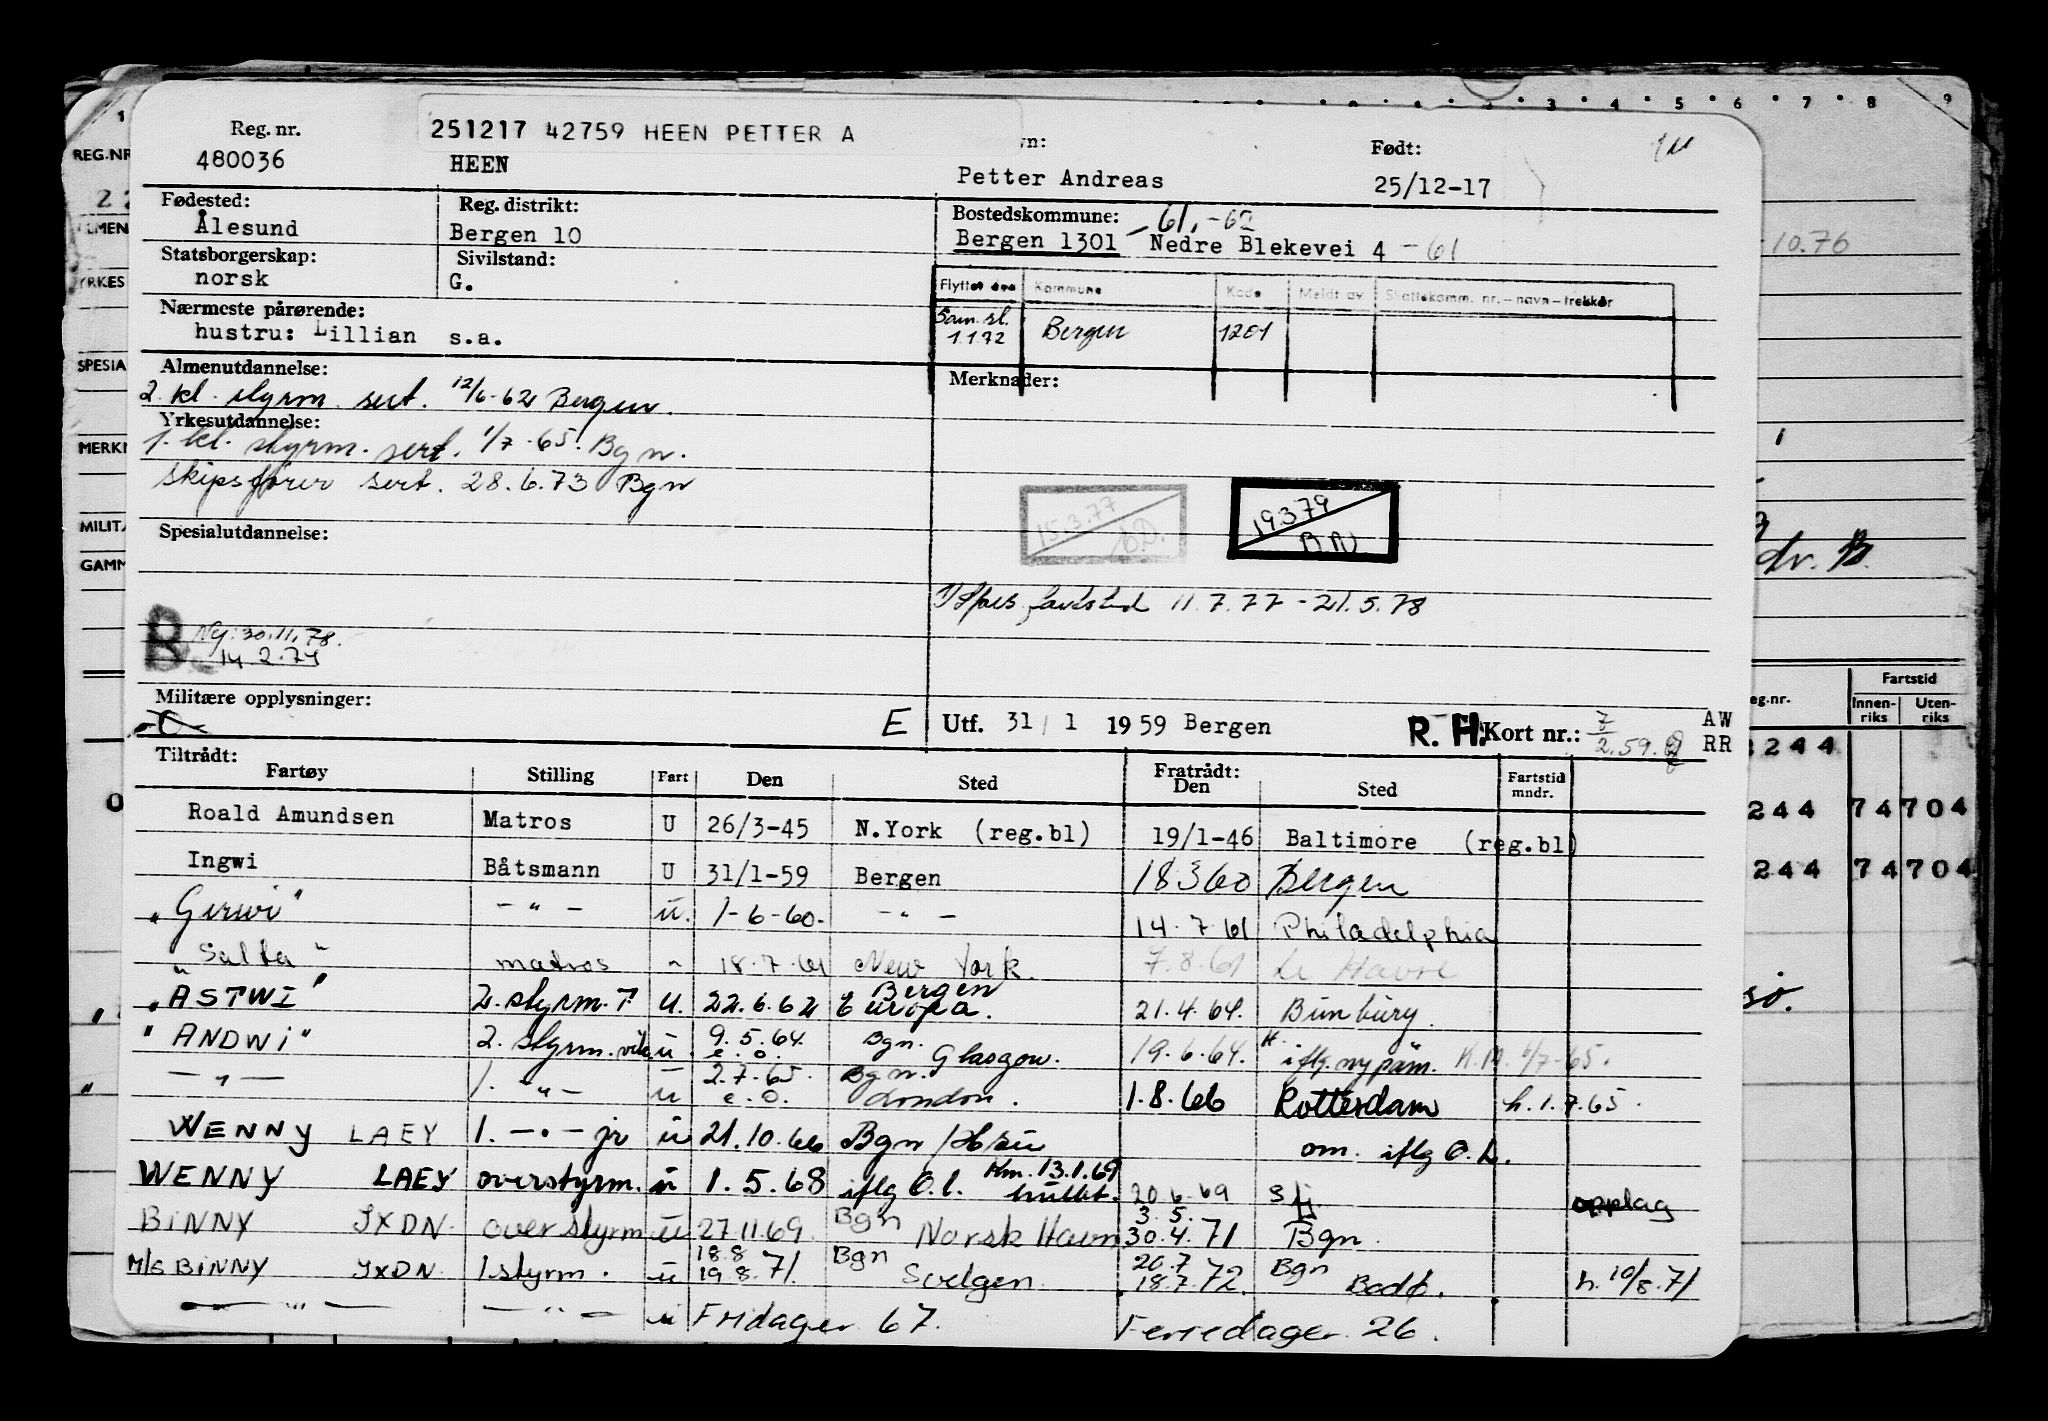 251217 42759 HEEN PETTER A
Reg. nr. 480036
HEEN
Petter Andreas
Født: 25/12-17
Fødested: Ålesund
Reg. distrikt: Bergen 10
Bostedskommune: 61,-62
Bergen 1301 Nedre Blekevei 4 -61
Statsborgerskap: norsk
Sivilstand: G.
Flyttet den Kommune Kode Meldt av Skattekomm. nr. - navn - trekkår
Sam. sl. 1.1.72 Bergen 1201
Nærmeste pårørende:
hustru: Lillian s.a.
Almenutdannelse:
2. kl. styrm. sert. 12/6-62 Bergen.
Merknader:
Yrkesutdannelse:
1. kl. styrm. sert. 1/7-65. Bgn.
skipsfører sert. 28.6.73 Bgn
15.3.77
19379
Spesialutdannelse:
fartstid 11.7.77 - 21.5.78
B Ny: 30.11.78.
14.2.74
Militære opplysninger:
E
Utf. 31/1 1959 Bergen
R. H. Kort nr.: 2.59.
AW
RR
Tiltrådt:
Fartøy Stilling Fart Den Sted Fratrådt: Den Sted Fartstid mndr.
Roald Amundsen Matros U 26/3-45 N.York (reg.bl) 19/1-46 Baltimore (reg.bl)
Ingwi Båtsmann U 31/1-59 Bergen 18360 Bergen
"Gerwi" - " - u. 1-6-60. - " - 14.7.61 Philadelphia
"Salta" matros " 18.7.61 New York. 7.8.61 Le Havre
"ASTWI" 2. styrm. u. 22.6.62 Bergen Europa. 21.4.64. Bunbury.
"ANDWI" 2. styrm. vik. u 9.5.64. e.o. Bgn. Glasgow. 19.6.64. iflg. ny påm.
- " - 1. - " - u 2.7.65. e.o. Bgn. London. 1.8.66 Rotterdam h. 1.7.65.
WENNY LAEY 1. - " - jr u 21.10.66 Bgn om. iflg O.L.
WENNY LAEY overstyrm. u 1.5.68 iflg O.l. 13.1.69 20.6.69 opplag
BINNY JXDN. overstyrm u 27.11.69 Bgn Norsk Havn 3.5. 30.4.71 Bgn.
M/S BINNY JXDN. 1 styrm. u 18.8 19.8.71. Bgn Svelgen. 20.7 18.7.72. Bgn Bodø. h. 10/8.71
- " - - " - u Fridager 67. Feriedager 26.
REG.NR
YRKES
SPESIA
MERKN
MILITÆ
GAMM
3 4 5 6 7 8 9
10.76
Fartstid
Innen-riks Uten-riks
244 74 704
244 74 704